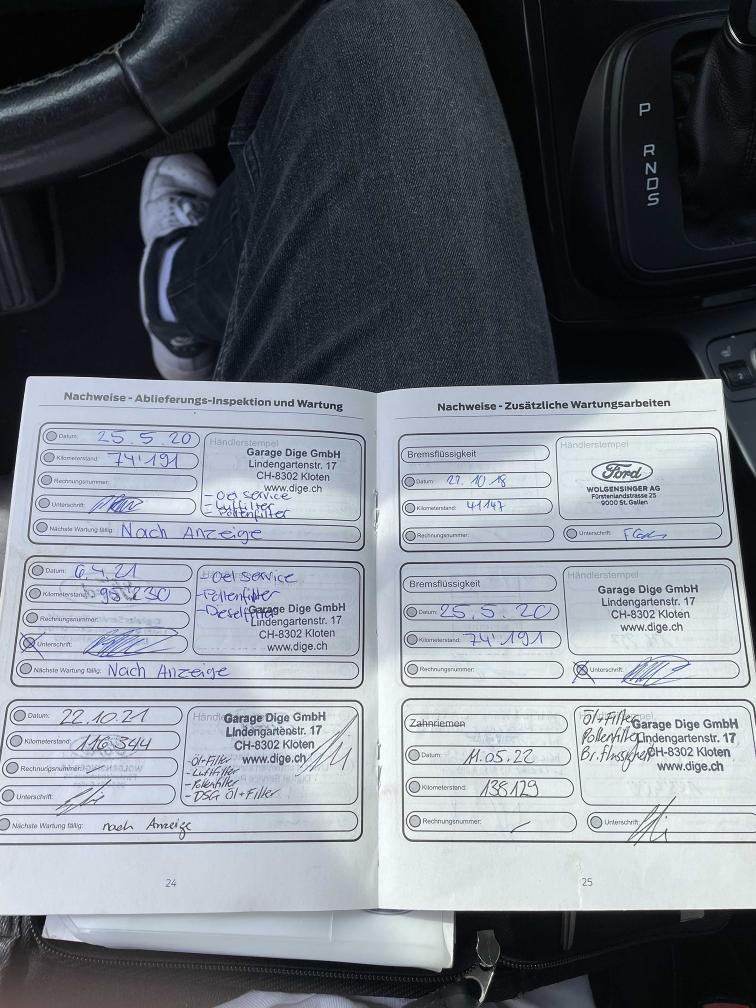 P
R
N
D
S
Nachweise - Ablieferungs-Inspektion und Wartung
Datum: 25.5.20
Kilometerstand: 74'191
Rechnungsnummer:
Unterschrift:
Nächste Wartung fällig: Nach Anzeige
Händlerstempel
Garage Dige GmbH
Lindengartenstr. 17
CH-8302 Kloten
www.dige.ch
- Oel service
- Luftfilter
- Pollenfilter
Datum: 6.4.21
Kilometerstand: 95'230
Rechnungsnummer:
Unterschrift:
Nächste Wartung fällig: Nach Anzeige
- Oel service
- Pollenfilter
- Dieselfilter
Garage Dige GmbH
Lindengartenstr. 17
CH-8302 Kloten
www.dige.ch
Datum: 22.10.21
Kilometerstand: 116'544
Rechnungsnummer: -
Unterschrift:
Nächste Wartung fällig: nach Anzeige
Garage Dige GmbH
Lindengartenstr. 17
CH-8302 Kloten
www.dige.ch
- Öl+Filter
- Luftfilter
- Pollenfilter
- DSG Öl+Filter
24
Nachweise - Zusätzliche Wartungsarbeiten
Bremsflüssigkeit
Datum: 22.10.18
Kilometerstand: 41147
Rechnungsnummer:
Händlerstempel
Ford
WOLGENSINGER AG
Fürstenlandstrasse 25
9000 St. Gallen
Unterschrift:
Bremsflüssigkeit
Datum: 25.5.20
Kilometerstand: 74'191
Rechnungsnummer:
Händlerstempel
Garage Dige GmbH
Lindengartenstr. 17
CH-8302 Kloten
www.dige.ch
Unterschrift:
Zahnriemen
Datum: 11.05.22
Kilometerstand: 138'129
Rechnungsnummer: -
Öl+Filter
Pollenfilter
Br. flüssigkeit
Garage Dige GmbH
Lindengartenstr. 17
CH-8302 Kloten
www.dige.ch
Unterschrift:
25